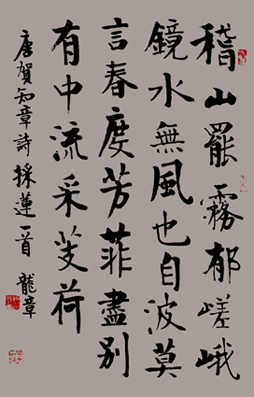 稽山罷霧郁嵯峨
鏡水無風也自波莫
言春度芳菲盡别
有中流采芰荷
唐賀知章詩採蓮一首 龍章